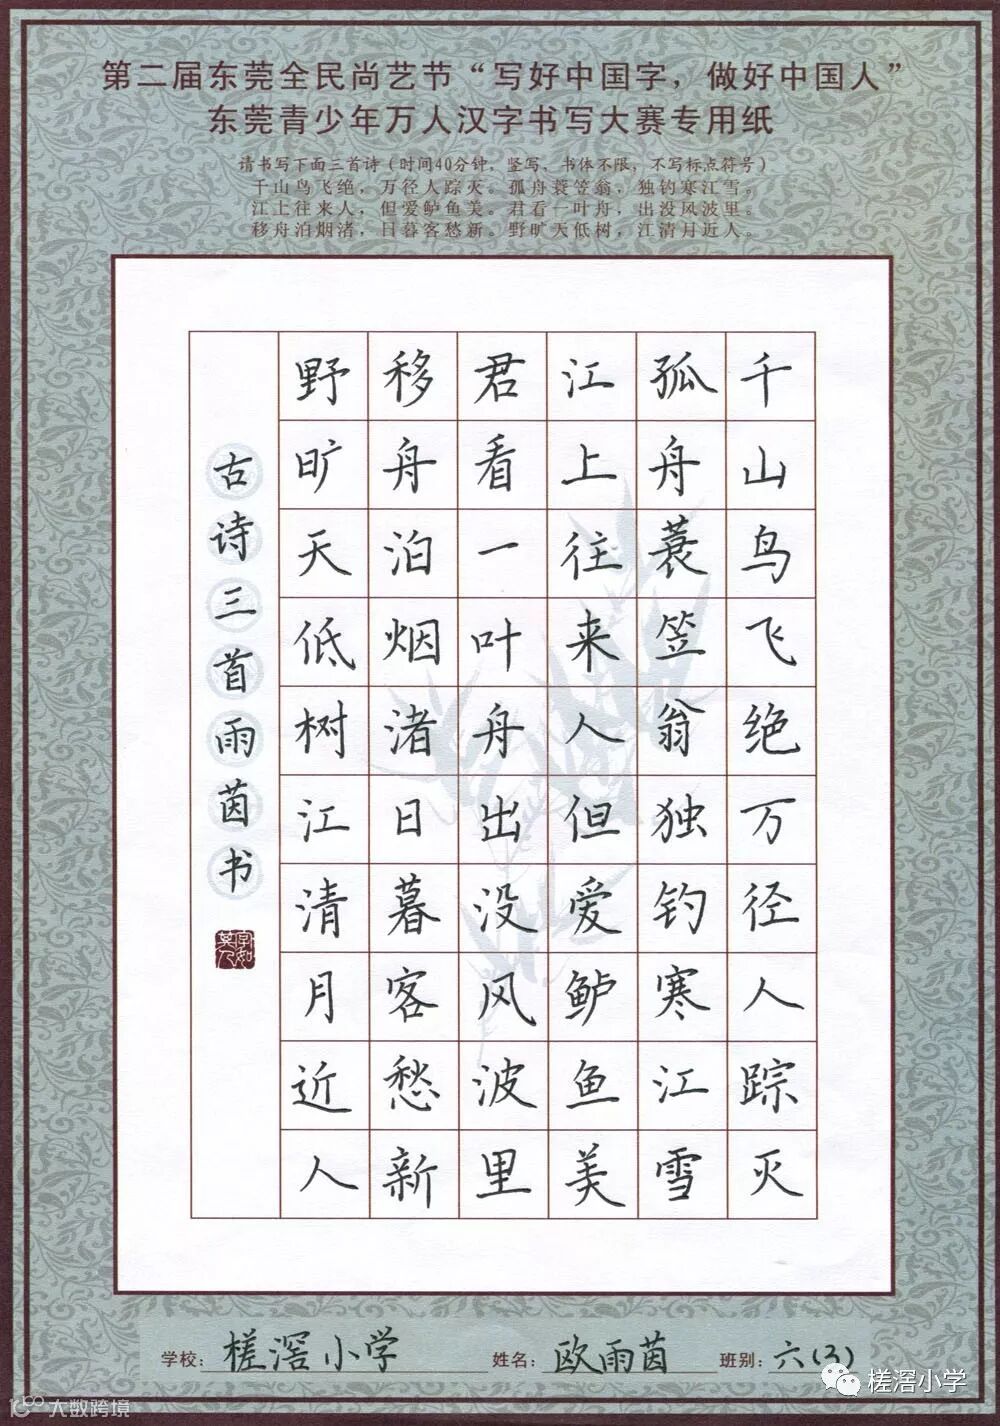 第二届东莞全民尚艺节“写好中国字，做好中国人”
东莞青少年万人汉字书写大赛专用纸
请书写下面三首诗（时间40分钟，竖写，书体不限，不写标点符号）
千山鸟飞绝，万径人踪灭。孤舟蓑笠翁，独钓寒江雪。
江上往来人，但爱鲈鱼美。君看一叶舟，出没风波里。
移舟泊烟渚，日暮客愁新。野旷天低树，江清月近人。
千山鸟飞绝万径人踪灭
孤舟蓑笠翁独钓寒江雪
江上往来人但爱鲈鱼美
君看一叶舟出没风波里
移舟泊烟渚日暮客愁新
野旷天低树江清月近人
古诗三首雨茵书
学校：槎滘小学 姓名：欧雨茵 班别：六(3)
槎滘小学
大数跨境